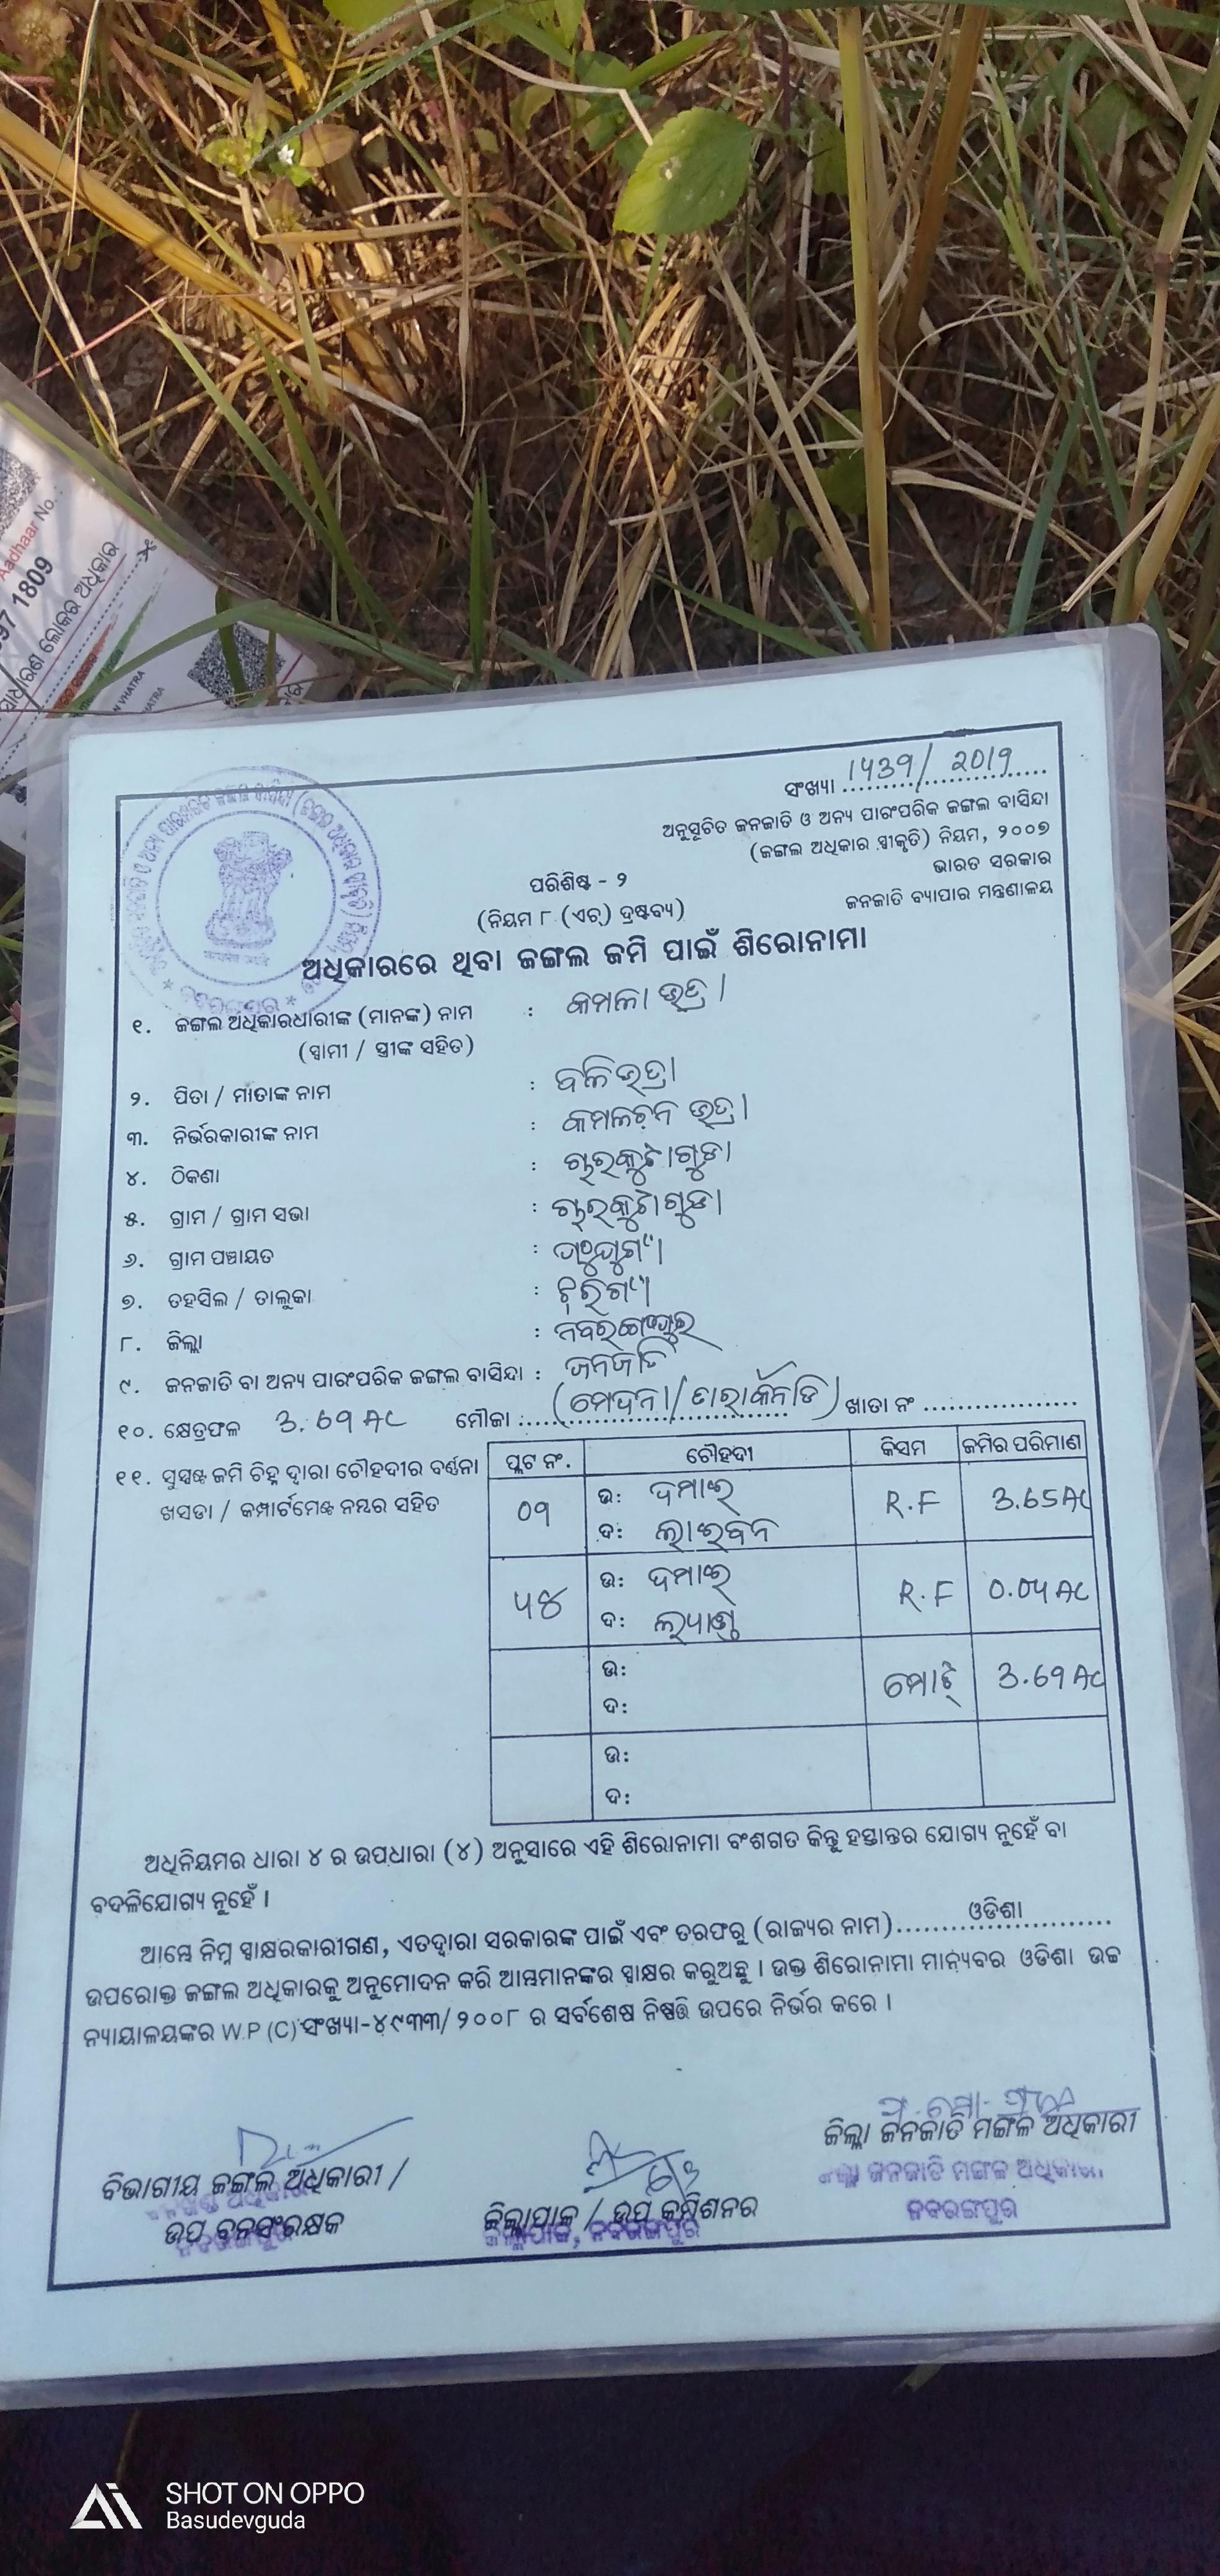 Aadhaar No.:
97 1809
ସାଧାରଣ ଲୋକର ଅଧିକାର
VHATRA
HATRA
ସଂଖ୍ୟା 1439/ 2019
ଅନୁସୂଚିତ ଜନଜାତି ଓ ଅନ୍ୟ ପାରଂପରିକ ଜଙ୍ଗଲ ବାସିନ୍ଦା
(ଜଙ୍ଗଲ ଅଧିକାର ସ୍ବୀକୃତି) ନିୟମ, ୨୦୦୭
ଭାରତ ସରକାର
ଜନଜାତି ବ୍ୟାପାର ମନ୍ତ୍ରଣାଳୟ
ପରିଶିଷ୍ଟ - ୨
(ନିୟମ ୮ (ଏଚ୍) ଦ୍ରଷ୍ଟବ୍ୟ)
ଅଧିକାରରେ ଥିବା ଜଙ୍ଗଲ ଜମି ପାଇଁ ଶିରୋନାମା
୧. ଜଙ୍ଗଲ ଅଧିକାରଧାରୀଙ୍କ (ମାନଙ୍କ) ନାମ : କମଳା ଭତ୍ରା
(ସ୍ବାମୀ / ସ୍ତ୍ରୀଙ୍କ ସହିତ)
୨. ପିତା / ମାତାଙ୍କ ନାମ : ବଳି ଭତ୍ରା
୩. ନିର୍ଭରକାରୀଙ୍କ ନାମ : କମଲଚନ ଭତ୍ରା
୪. ଠିକଣା :
୫. ଗ୍ରାମ / ଗ୍ରାମ ସଭା :
୬. ଗ୍ରାମ ପଞ୍ଚାୟତ :
୭. ତହସିଲ / ତାଲୁକା :
୮. ଜିଲ୍ଲା : ନବରଙ୍ଗପୁର
୯. ଜନଜାତି ବା ଅନ୍ୟ ପାରଂପରିକ ଜଙ୍ଗଲ ବାସିନ୍ଦା : ଜନଜାତି
୧୦. କ୍ଷେତ୍ରଫଳ 3.69 AC ମୌଜା : ଖାତା ନଂ
୧୧. ସୁସ୍ପଷ୍ଟ ଜମି ଚିହ୍ନ ଦ୍ବାରା ଚୌହଦୀର ବର୍ଣ୍ଣନା
ଖସଡା / କମ୍ପାର୍ଟମେଣ୍ଟ ନମ୍ବର ସହିତ
ପ୍ଲଟ ନଂ. ଚୌହଦୀ କିସମ ଜମିର ପରିମାଣ
09 ଉ: ଦମାଇ R.F 3.65 AC
ଦ: ଲାଇବନ
ଉ: ଦମାଇ R.F 0.04 AC
ଦ:
ଉ: ମୋଟ୍ 3.69 AC
ଦ:
ଉ:
ଦ:
ଅଧିନିୟମର ଧାରା ୪ ର ଉପଧାରା (୪) ଅନୁସାରେ ଏହି ଶିରୋନାମା ବଂଶଗତ କିନ୍ତୁ ହସ୍ତାନ୍ତର ଯୋଗ୍ୟ ନୁହେଁ ବା
ବଦଳିଯୋଗ୍ୟ ନୁହେଁ ।
ଆମ୍ଭେ ନିମ୍ନ ସ୍ବାକ୍ଷରକାରୀଗଣ, ଏତଦ୍ବାରା ସରକାରଙ୍କ ପାଇଁ ଏବଂ ତରଫରୁ (ରାଜ୍ୟର ନାମ) ଓଡିଶା
ଉପରୋକ୍ତ ଜଙ୍ଗଲ ଅଧିକାରକୁ ଅନୁମୋଦନ କରି ଆମ୍ଭମାନଙ୍କର ସ୍ବାକ୍ଷର କରୁଅଛୁ । ଉକ୍ତ ଶିରୋନାମା ମାନ୍ୟବର ଓଡିଶା ଉଚ୍ଚ
ନ୍ୟାୟାଳୟଙ୍କର W.P (C) ସଂଖ୍ୟା-୪୯୩୩/୨୦୦୮ ର ସର୍ବଶେଷ ନିଷ୍ପତ୍ତି ଉପରେ ନିର୍ଭର କରେ ।
ଜିଲ୍ଲା ଜନଜାତି ମଙ୍ଗଳ ଅଧିକାରୀ
ବିଭାଗୀୟ ଜଙ୍ଗଲ ଅଧିକାରୀ /
ଜିଲ୍ଲା ଜନଜାତି ମଙ୍ଗଳ ଅଧିକାରୀ
ଉପ ବନସଂରକ୍ଷକ
ଜିଲ୍ଲାପାଳ / ଉପ କମିଶନର
ନବରଙ୍ଗପୁର
ଜିଲ୍ଲାପାଳ, ନବରଙ୍ଗପୁର
SHOT ON OPPO
Basudevguda